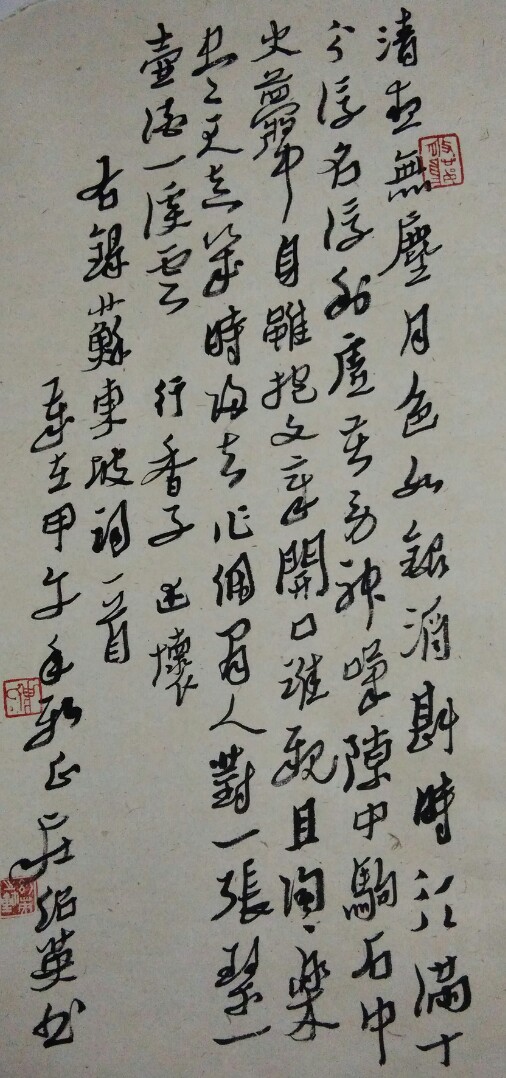 清夜無塵月色如銀酒斟時須滿十
分浮名浮利虛苦勞神嘆隙中駒石中
火夢中身雖抱文章開口誰親且陶々樂
盡天真幾時歸去作個閑人對一張琴一
壺酒一溪雲 行香子 述懷
右錄蘇東坡詞一首
歲在甲午年新正莊紹英書